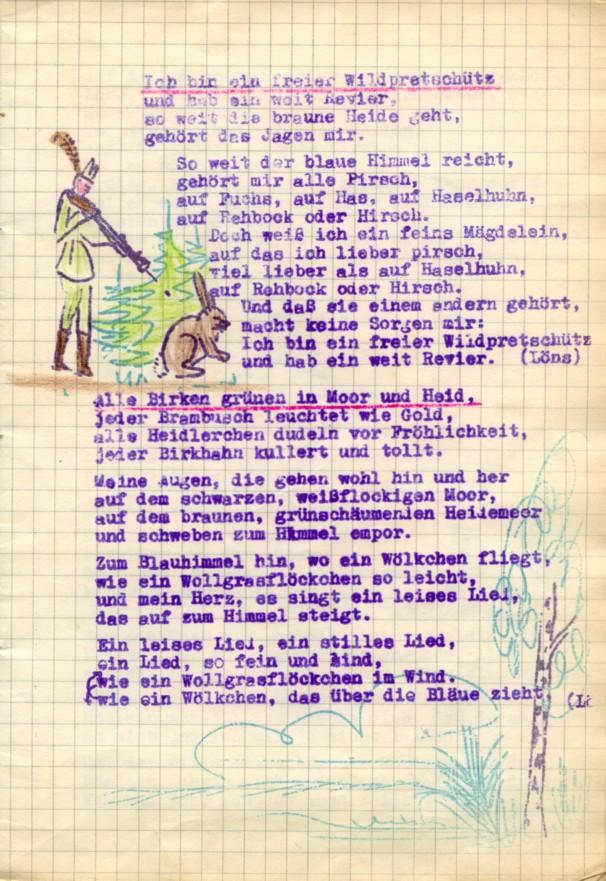 Ich bin ein freier Wildpretschütz
und hab ein weit Revier,
so weit die braune Heide geht,
gehört das Jagen mir.
So weit der blaue Himmel reicht,
gehört mir alle Pirsch,
auf Fuchs, auf Has, auf Haselhuhn,
auf Rehbock oder Hirsch.
Doch weiß ich ein feins Mägdelein,
auf das ich lieber pirsch,
viel lieber als auf Haselhuhn,
auf Rehbock oder Hirsch.
Und daß sie einem andern gehört,
macht keine Sorgen mir:
Ich bin ein freier Wildpretschütz
und hab ein weit Revier. (Löns)
Alle Birken grünen in Moor und Heid,
jeder Brambusch leuchtet wie Gold,
alle Heidlerchen dudeln vor Fröhlichkeit,
jeder Birkhahn kullert und tollt.
Meine Augen, die gehen wohl hin und her
auf dem schwarzen, weißflockigen Moor,
auf dem braunen, grünschäumenden Heidemeer
und schweben zum Himmel empor.
Zum Blauhimmel hin, wo ein Wölkchen fliegt,
wie ein Wollgrasflöckchen so leicht,
und mein Herz, es singt ein leises Lied,
das auf zum Himmel steigt.
Ein leises Lied, ein stilles Lied,
ein Lied, so fein und lind,
(wie ein Wollgrasflöckchen im Wind.
(wie ein Wölkchen, das über die Bläue zieht (Lö